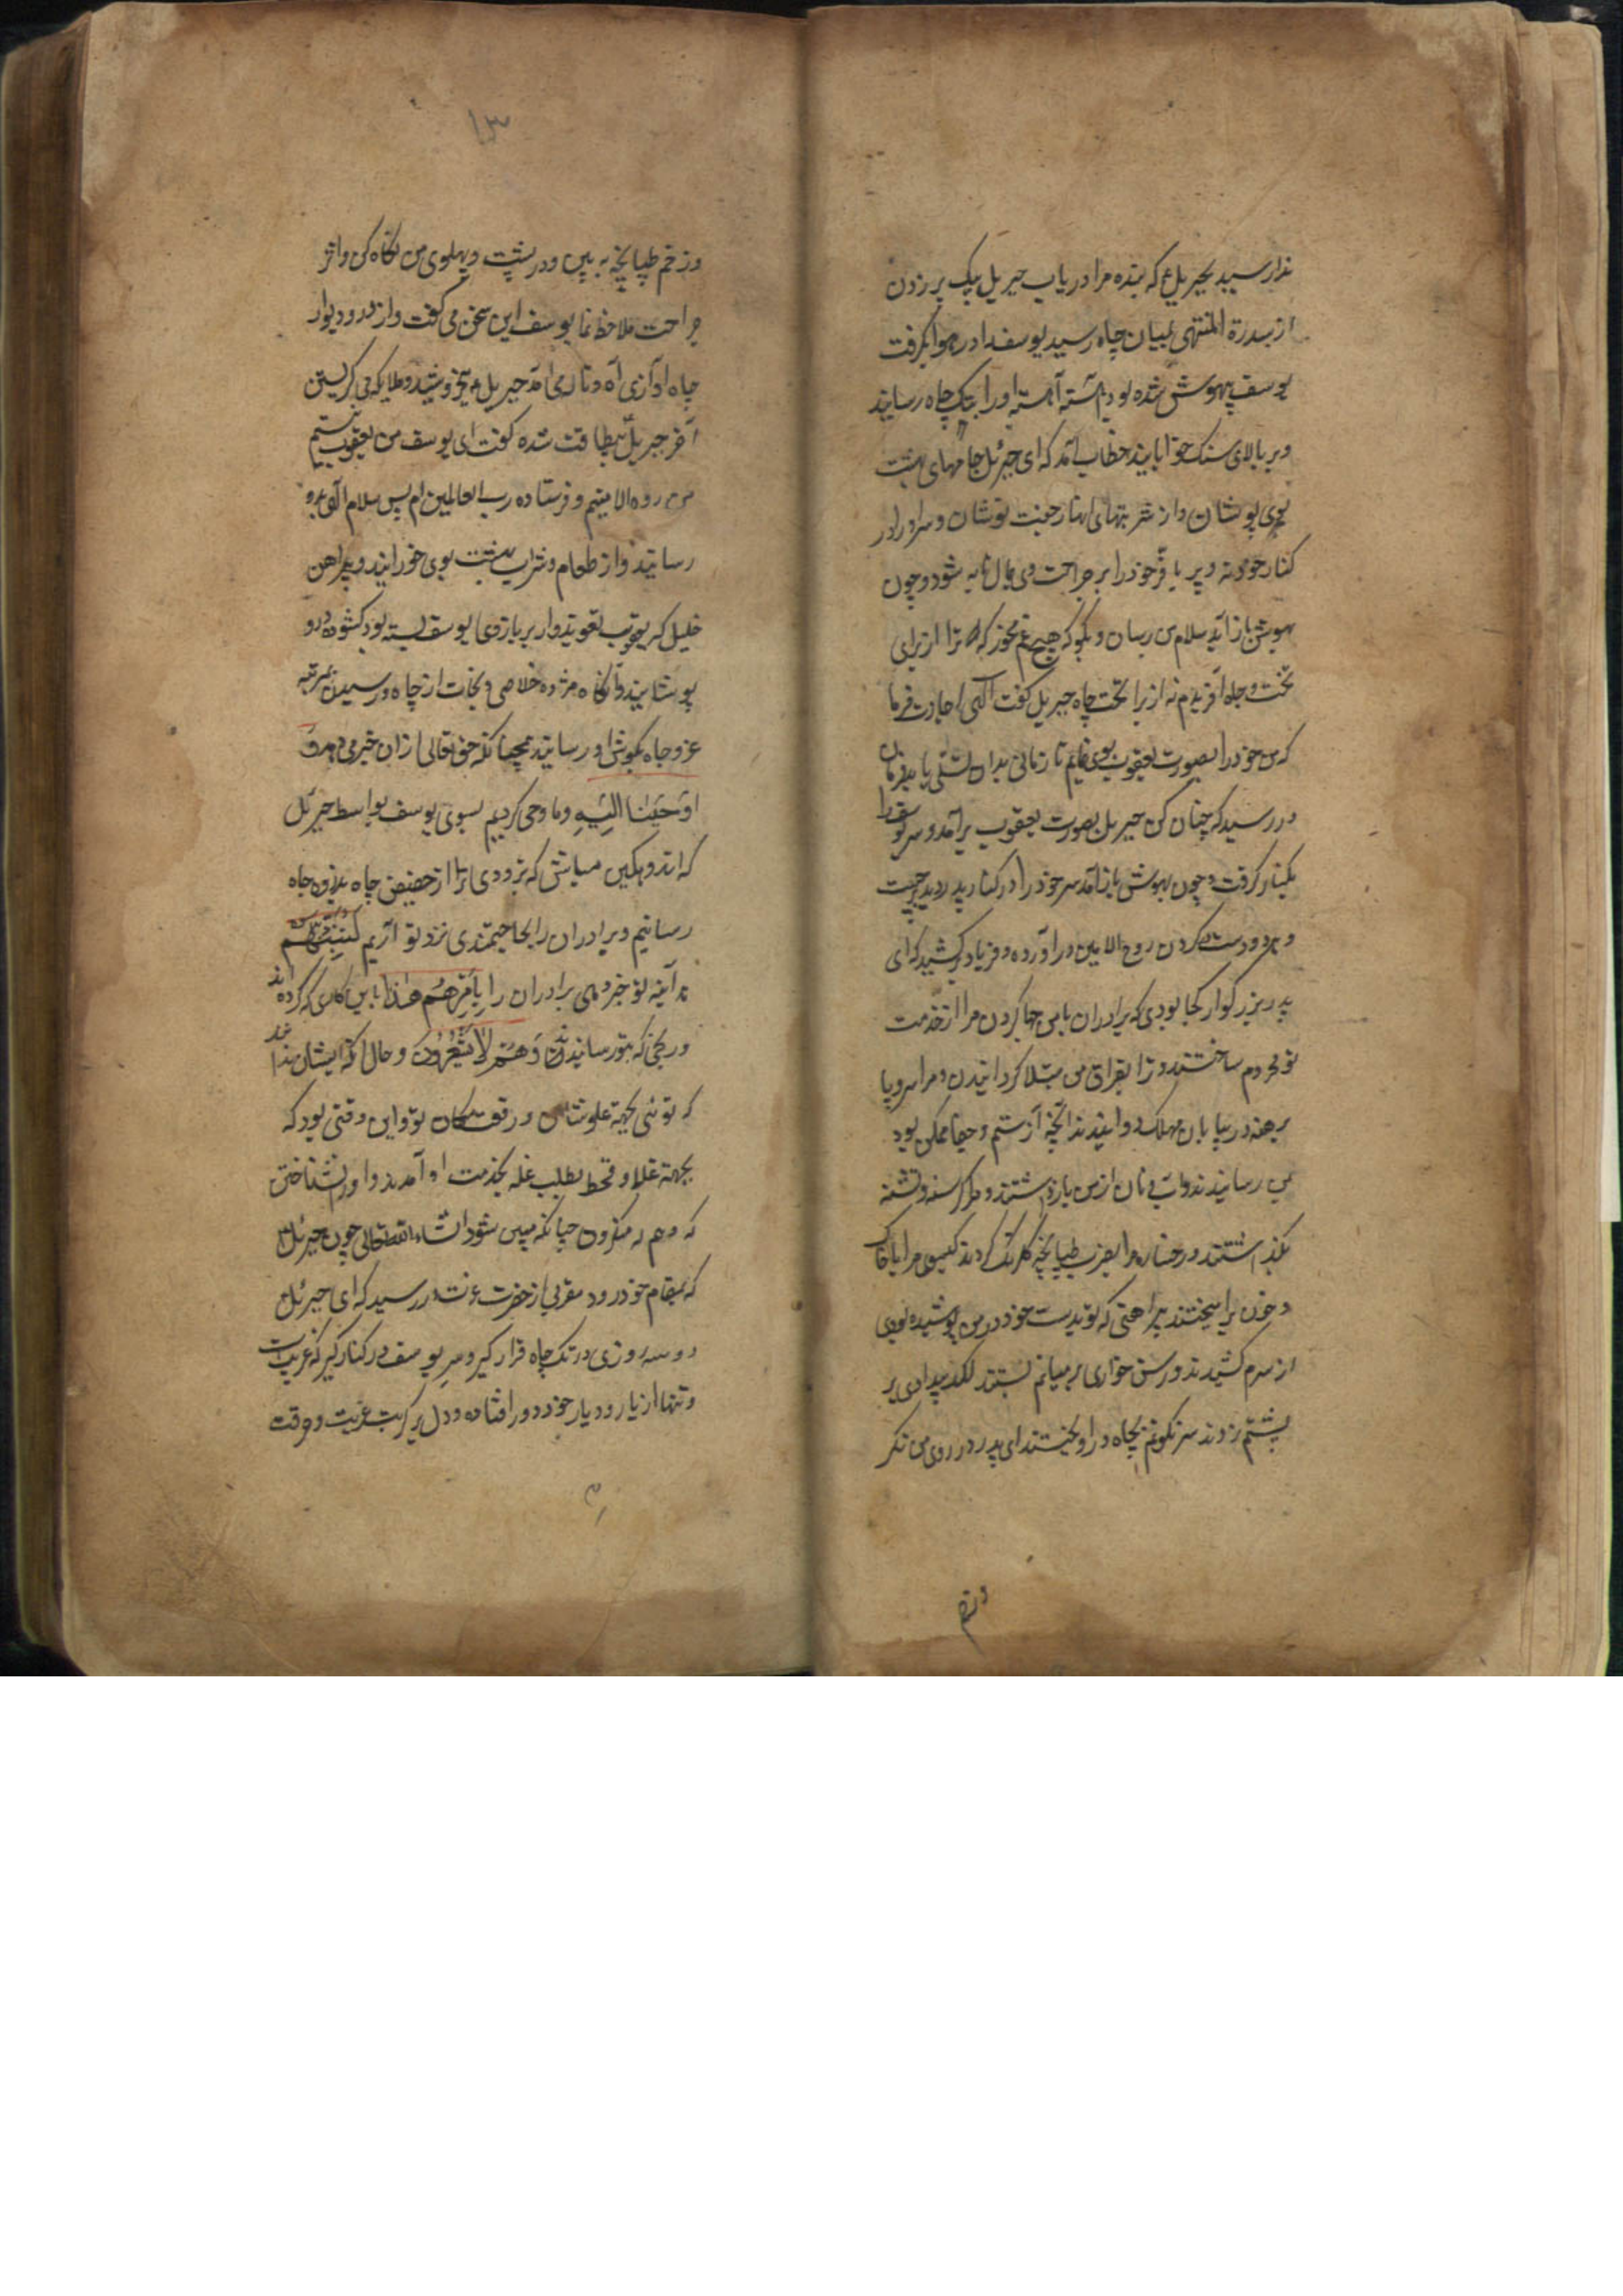 ندا رسید بجبریل ع که بنده مرا دریاب جبریل بیک پر زدن
از سدرة المنتهی بمیان چاه رسید یوسف را در هوا بگرفت
یوسف بیهوش شده بود آهسته آهسته او را بتک چاه رسانید
و بر بالای سنک خوابانید خطاب آمد که ای جبرئیل جامهای بهشت
بوی پوشان و از شربتهای انهار جنت نوشان و سر او را در
کنار خود نه و پر با فر خود را بر جراحت وی بمال تا به شود و چون
بهوش باز آید سلام من رسان و بکو که هیچ غم مخور که ترا از برای
تخت و جاه آفریدم نه از برا تخت چاه جبریل کفت الهی اجازت فرما
که من خود را بصورت یعقوب بوی نمایم تا زمانی بدان تسلی یابد فرمان
در رسید که چنان کن جبریل بصورت یعقوب برآمد و سر یوسف را
بکنار کرفت و چون بهوش باز آمد سر خود را در کنار پدر دید برجست
و هر دو دست در کردن روح الامین در آورده و فریاد برکشید که ای
پدر بزرکوار کجا بودی که برادران بامن جها کردن مرا از خدمت
تو محروم ساختند و ترا بفراق من مبتلا کردانیدن و مرا سر و پا
برهنه در بیابان مهلک دوانیدند آنچه از ستم و جفا ممکن بود
بمن رسانیدند و آب و نان از من باز داشتند و مرا کرسنه و تشنه
بکذاشتند و رخساره مرا بضرب طپانچه کلرنک کردند کیسوی مرا باخاک
و خون برامیختند پیراهنی که تو بدست خود در من پوشیده بودی
از سرم کشیدند و رسن خواری بر میانم بستند لکد بیدادی بر
پشتم زدند سرنکونم بچاه در آویختند ای پدر در روی من نکر
و زخم
۱۳
و زخم طپانچه به بین و در پشت و پهلوی من نکاه کن و اثر
جراحت ملاحظه نما یوسف این سخن می کفت و از در و دیوار
چاه آوازی آه و ناله می آمد جبریل ع میخروشید و ملایکه می کریستن
آخر جبریل بیطاقت شده کفت ای یوسف من یعقوب نیستم
من روح الامینم و فرستاده رب العالمین ام پس سلام الهی بدو
رسانید و از طعام و شراب بهشت بوی خورانید و پیراهن
خلیل که یعقوب تعویذوار بر بازوی یوسف بسته بود کشوده درو
پوشانید و آنکاه مژده خلاصی و نجات از چاه و رسیدن بمرتبه
عز و جاه بکوش او رسانید همچنانکه حق تعالی ازان خبر می دهد و
اوحینا الیه و ما وحی کردیم بسوی یوسف بواسط جبرئیل
که اندوهکین مباش که بزودی ترا از حضیض چاه بذروه جاه
رسانیم و برادران را بحاجتمندی نزد تو آریم لتنبئنهم
هر آینه تو خبر دهی برادران را بامرهم هذا باین کاری که کرده اند
و رنجی که بتو رسانیدند و هم لا یشعرون و حال آنکه ایشان ندانند
که توئی بجهة علو شان و رفعت مکان تو و این وقتی بود که
بجهة غلا و قحط بطلب غله بخدمت او آمدند و او را نشناختن
که و هم له منکرون چنانکه مبین شود انشاءالله تعالی چون جبرئیل
که بمقام خود رود مقربی از حضرت عزت در رسید که ای جبرئیل
دو سه روزی در تک چاه قرار کیر و سر یوسف در کنار کیر که غریبست
و تنها از یار و دیار خود دور افتاده و دل بر کربت غربت و فرقت